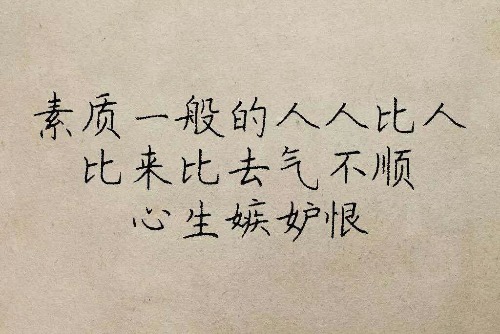 素质一般的人人比人
比来比去气不顺
心生嫉妒恨